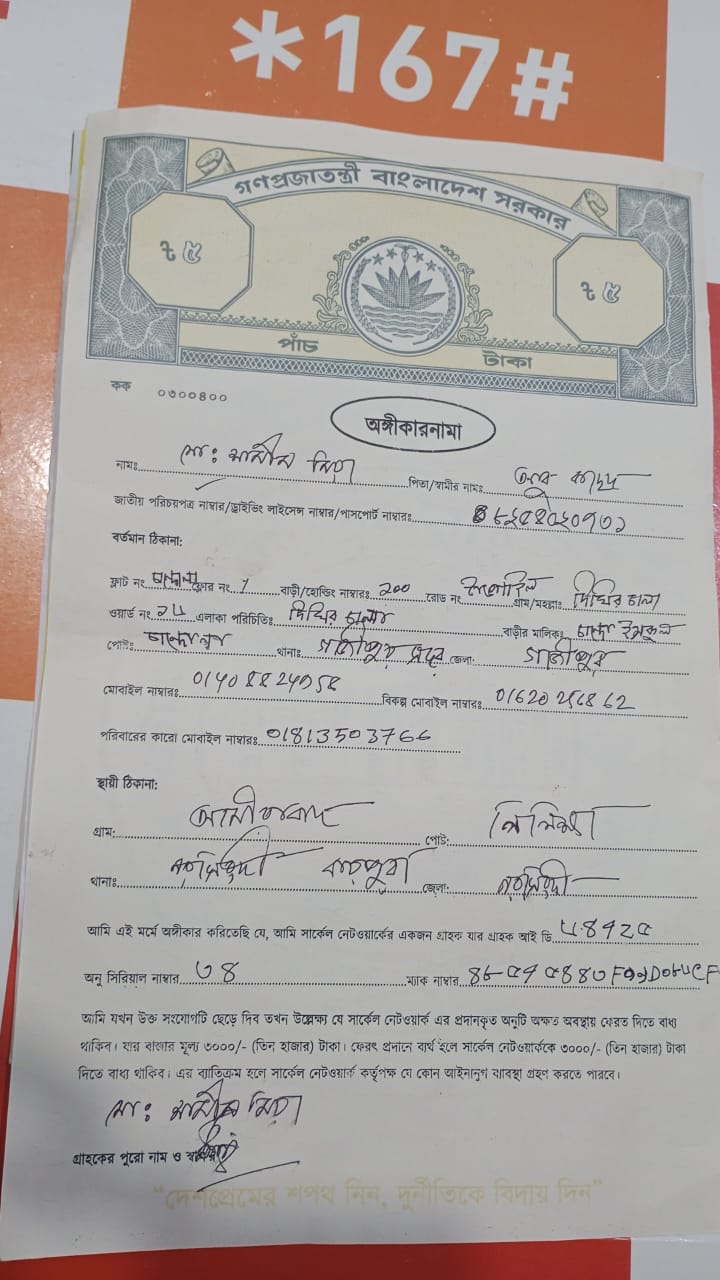 *167#
গণপ্রজাতন্ত্রী বাংলাদেশ সরকার
৳ ৫ ৳ ৫
পাঁচ টাকা
কক ০৩০০৪০০
অঙ্গীকারনামা
নামঃ মো: মিয়া পিতা/স্বামীর নামঃ
জাতীয় পরিচয়পত্র নাম্বার/ড্রাইভিং লাইসেন্স নাম্বার/পাসপোর্ট নাম্বারঃ
বর্তমান ঠিকানা:
ফ্লাট নং ফ্লোর নং 1 বাড়ী/হোল্ডিং নাম্বারঃ ২০০ রোড নং গ্রাম/মহল্লাঃ দিঘির চালা
ওয়ার্ড নং এলাকা পরিচিতিঃ দিঘির চালা বাড়ীর মালিকঃ
পোষ্টঃ থানাঃ গাজীপুর সদর জেলা: গাজীপুর
মোবাইল নাম্বারঃ বিকল্প মোবাইল নাম্বারঃ
পরিবারের কারো মোবাইল নাম্বারঃ 01813503766
স্থায়ী ঠিকানা:
গ্রাম: পোষ্ট:
থানাঃ নরসিংদী রায়পুরা জেলা: নরসিংদী
আমি এই মর্মে অঙ্গীকার করিতেছি যে, আমি সার্কেল নেটওয়ার্কের একজন গ্রাহক যার গ্রাহক আই ডি
অনু সিরিয়াল নাম্বার ৩৪ ম্যাক নাম্বার
আমি যখন উক্ত সংযোগটি ছেড়ে দিব তখন উল্লেক্ষ্য যে সার্কেল নেটওয়ার্ক এর প্রদানকৃত অনুটি অক্ষত অবস্থায় ফেরত দিতে বাধ্য
থাকিব। যার বাজার মূল্য ৩০০০/- (তিন হাজার) টাকা। ফেরৎ প্রদানে ব্যর্থ হলে সার্কেল নেটওয়ার্ককে ৩০০০/- (তিন হাজার) টাকা
দিতে বাধ্য থাকিব। এর ব্যতিক্রম হলে সার্কেল নেটওয়ার্ক কর্তৃপক্ষ যে কোন আইনানুগ ব্যবস্থা গ্রহণ করতে পারবে।
মো: মিয়া
গ্রাহকের পুরো নাম ও
“দেশপ্রেমের শপথ নিন, দুর্নীতিকে বিদায় দিন”